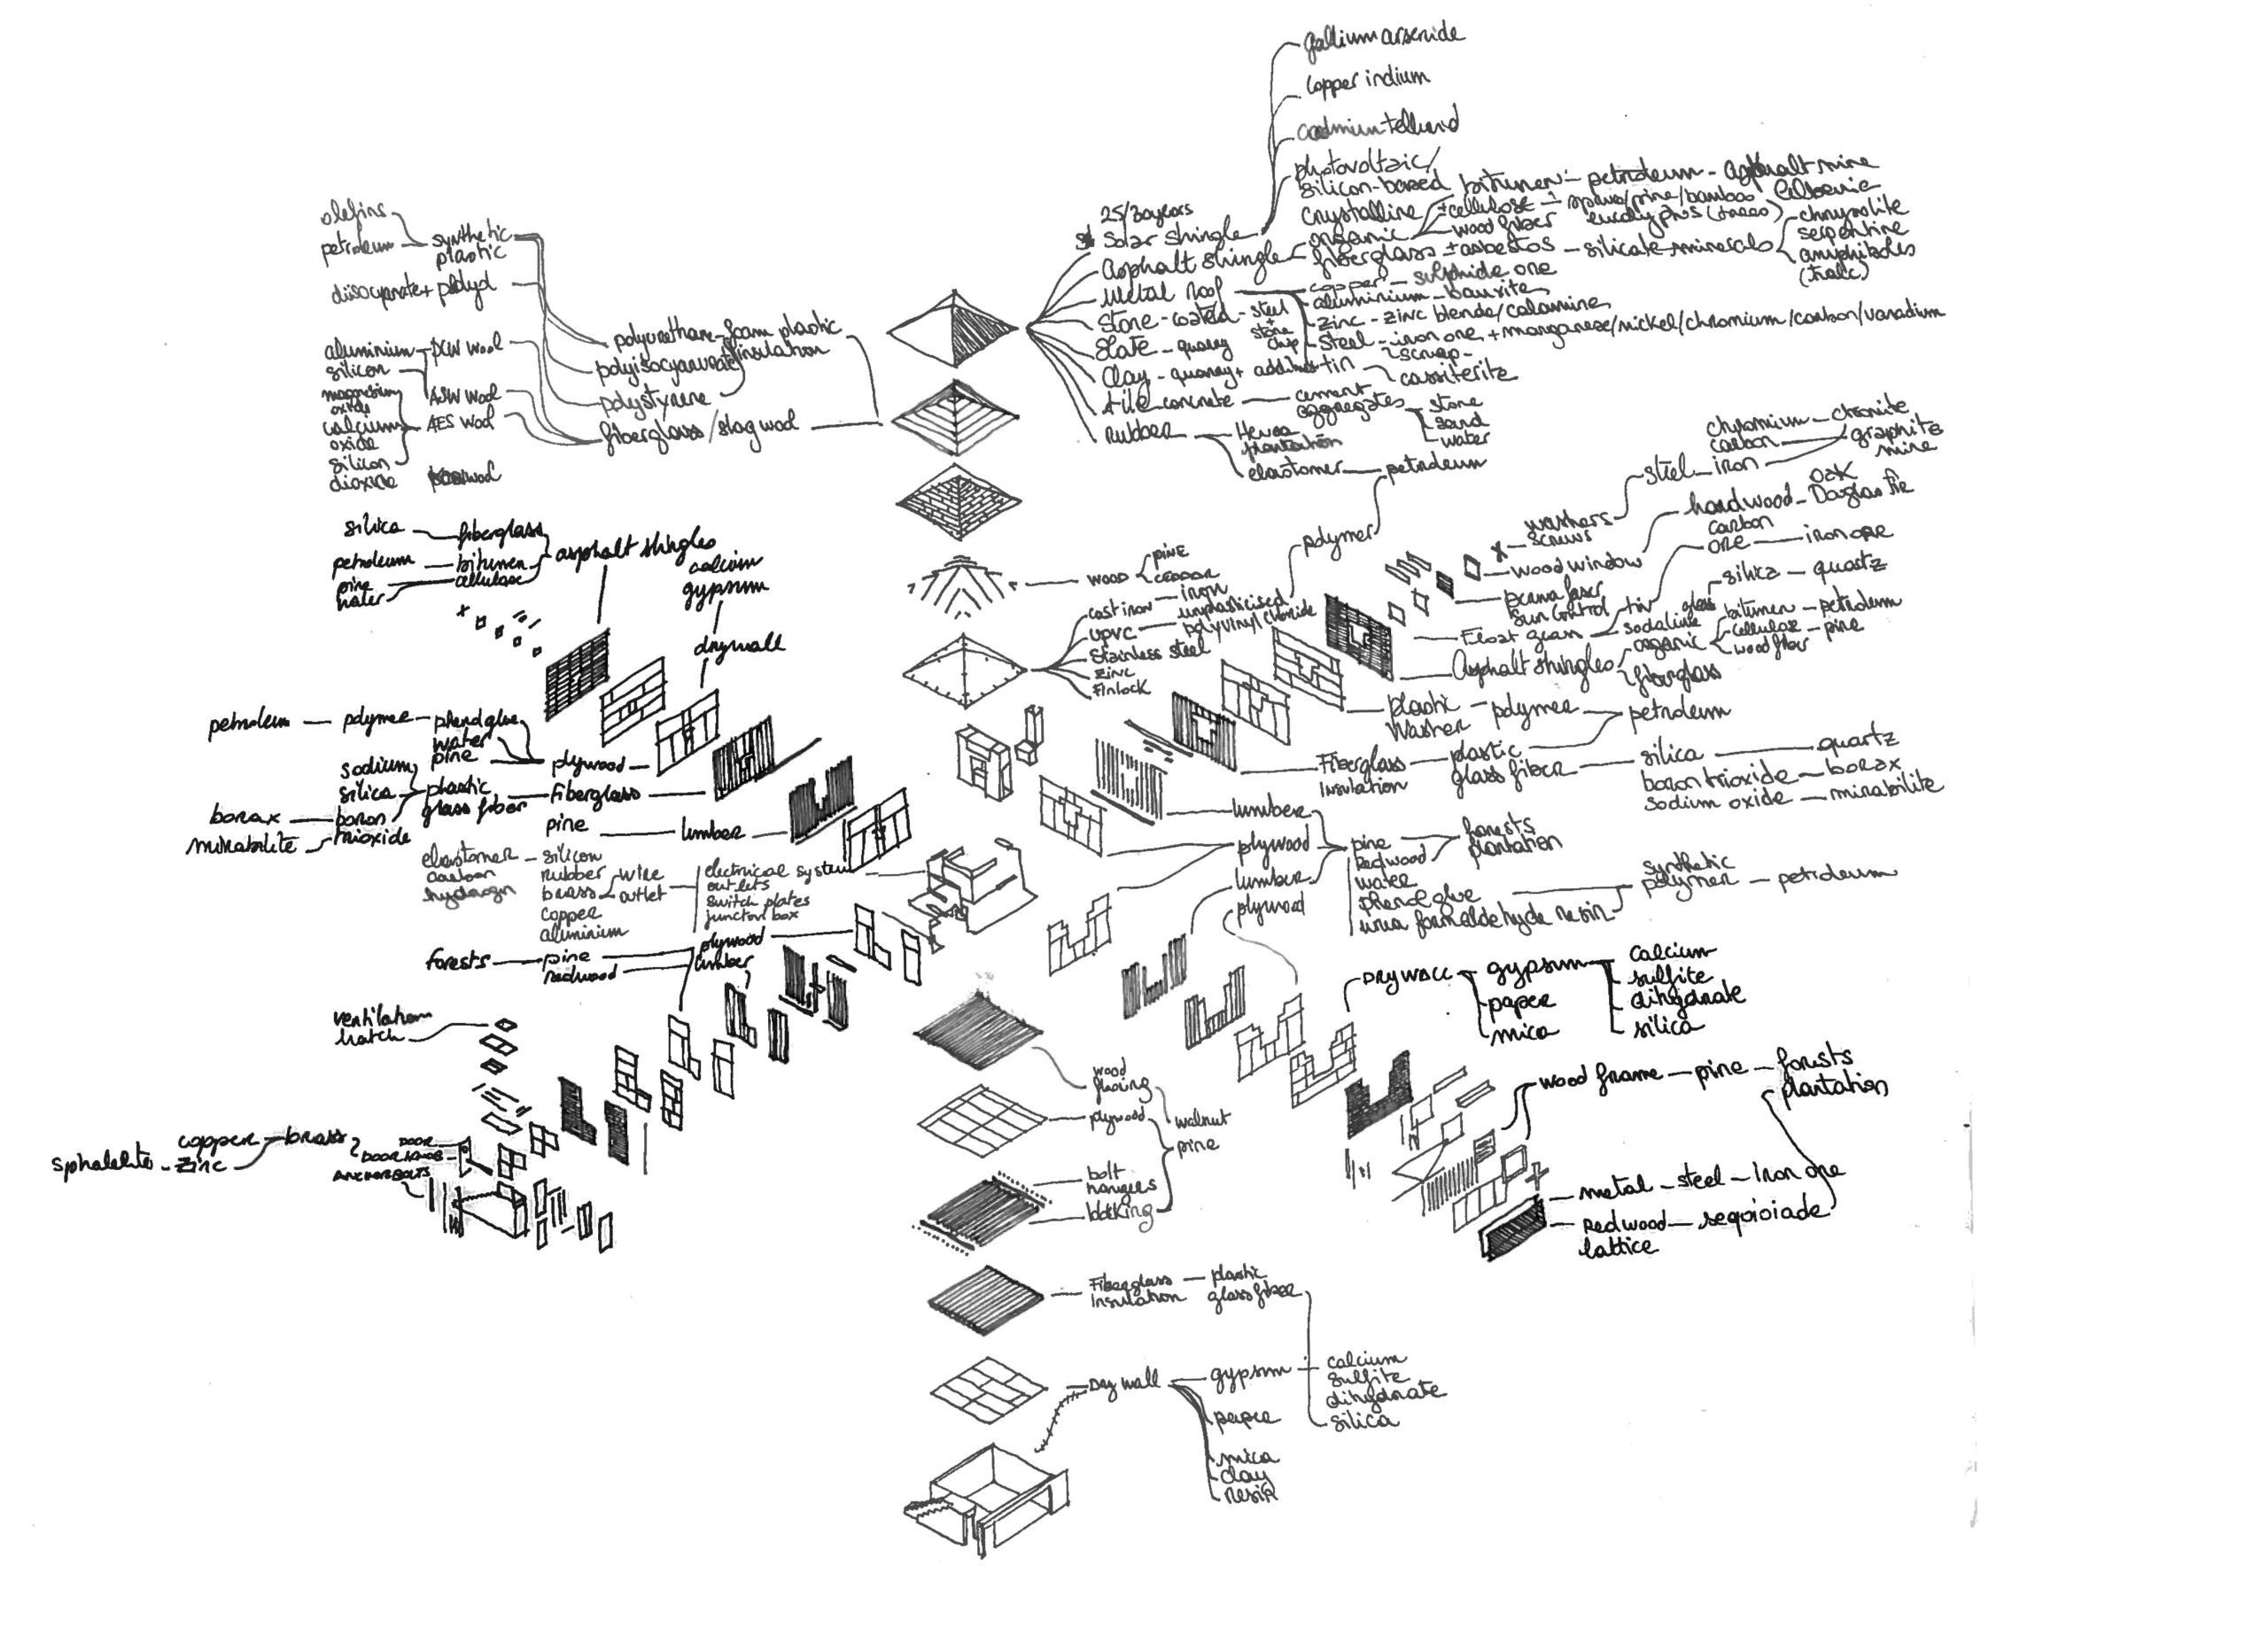 gallium arsenide
copper indium
cadmium tellurid
photovoltaic/
silicon-based
crystalline
bitumen - petroleum - asphalt mine
± cellulose - spruce/pine/bamboo
eucalyptus (trees)
wood fiber
25/30 years
Solar shingle
organic
Asphalt shingle
fiberglass ± asbestos - silicate minerals
chrysolite
serpentine
amphiboles
(talc)
Metal roof
copper - sulphide ore
aluminium - bauxite
zinc - zinc blende/calamine
steel - iron ore + manganese/nickel/chromium/carbon/vanadium
scrap
tin
cassiterite
Stone-coated - steel
+
stone
chip
Slate - quarry
Clay - quarry +
tile concrete
cement
aggregates
stone
sand
water
rubber
Hevea
plantation
elastomer - petroleum
polymer
olefins
petroleum
synthetic
plastic
diisocyanate + polyol
polyurethane-foam plastic
polyisocyanurate
insulation
polystyrene
fiberglass/slag wool
aluminium
silicon
PCW wool
ASW wool
magnesium
oxide
calcium
oxide
silicon
dioxide
AES wool
silica
fiberglass
petroleum
bitumen
pine
water
cellulose
asphalt shingles
calcium
gypsum
drywall
wood
pine
cast iron - iron
upvc
unplasticised
polyvinyl chloride
Stainless steel
zinc
Finlock
chromium - chromite
carbon
graphite
mine
steel - iron
washers
screws
hardwood
oak
Douglas Fir
wood window
carbon
ore - iron ore
sun control
tin
Float glass
sodalime
glass
silica - quartz
Asphalt shingles
organic
bitumen - petroleum
cellulose - pine
wood fiber
fiberglass
plastic - polymer - petroleum
Washer
Fiberglass
Insulation
plastic
glass fiber
silica - quartz
boron trioxide - borax
sodium oxide - mirabilite
lumber
plywood
lumber
plywood
pine
Redwood
water
phenol glue
urea formaldehyde resin
forests
plantation
synthetic
polymer - petroleum
petroleum - polymer - phenol glue
water
pine
plywood
sodium
silica
borax - boron
trioxide
mirabilite
plastic
glass fiber
fiberglass
pine
lumber
elastomer - silicon
carbon
hydrogen
rubber
brass
copper
aluminium
wire
outlet
electrical system
outlets
switch plates
junction box
forests - pine
redwood
plywood
lumber
ventilation
hatch
sphalelite - zinc
copper - brass
DOOR
DOOR KNOB
ANCHOR BOLTS
DRYWALL
gypsum
paper
mica
calcium
sulfite
dihydrate
silica
wood frame - pine - forests
plantation
metal - steel - iron ore
Redwood - sequioiade
lattice
wood
plywood
walnut
pine
bolt
hangers
Fiberglass - plastic
Insulation glass fiber
Dry wall - gypsum
calcium
sulfite
dihydrate
silica
paper
mica
clay
resin